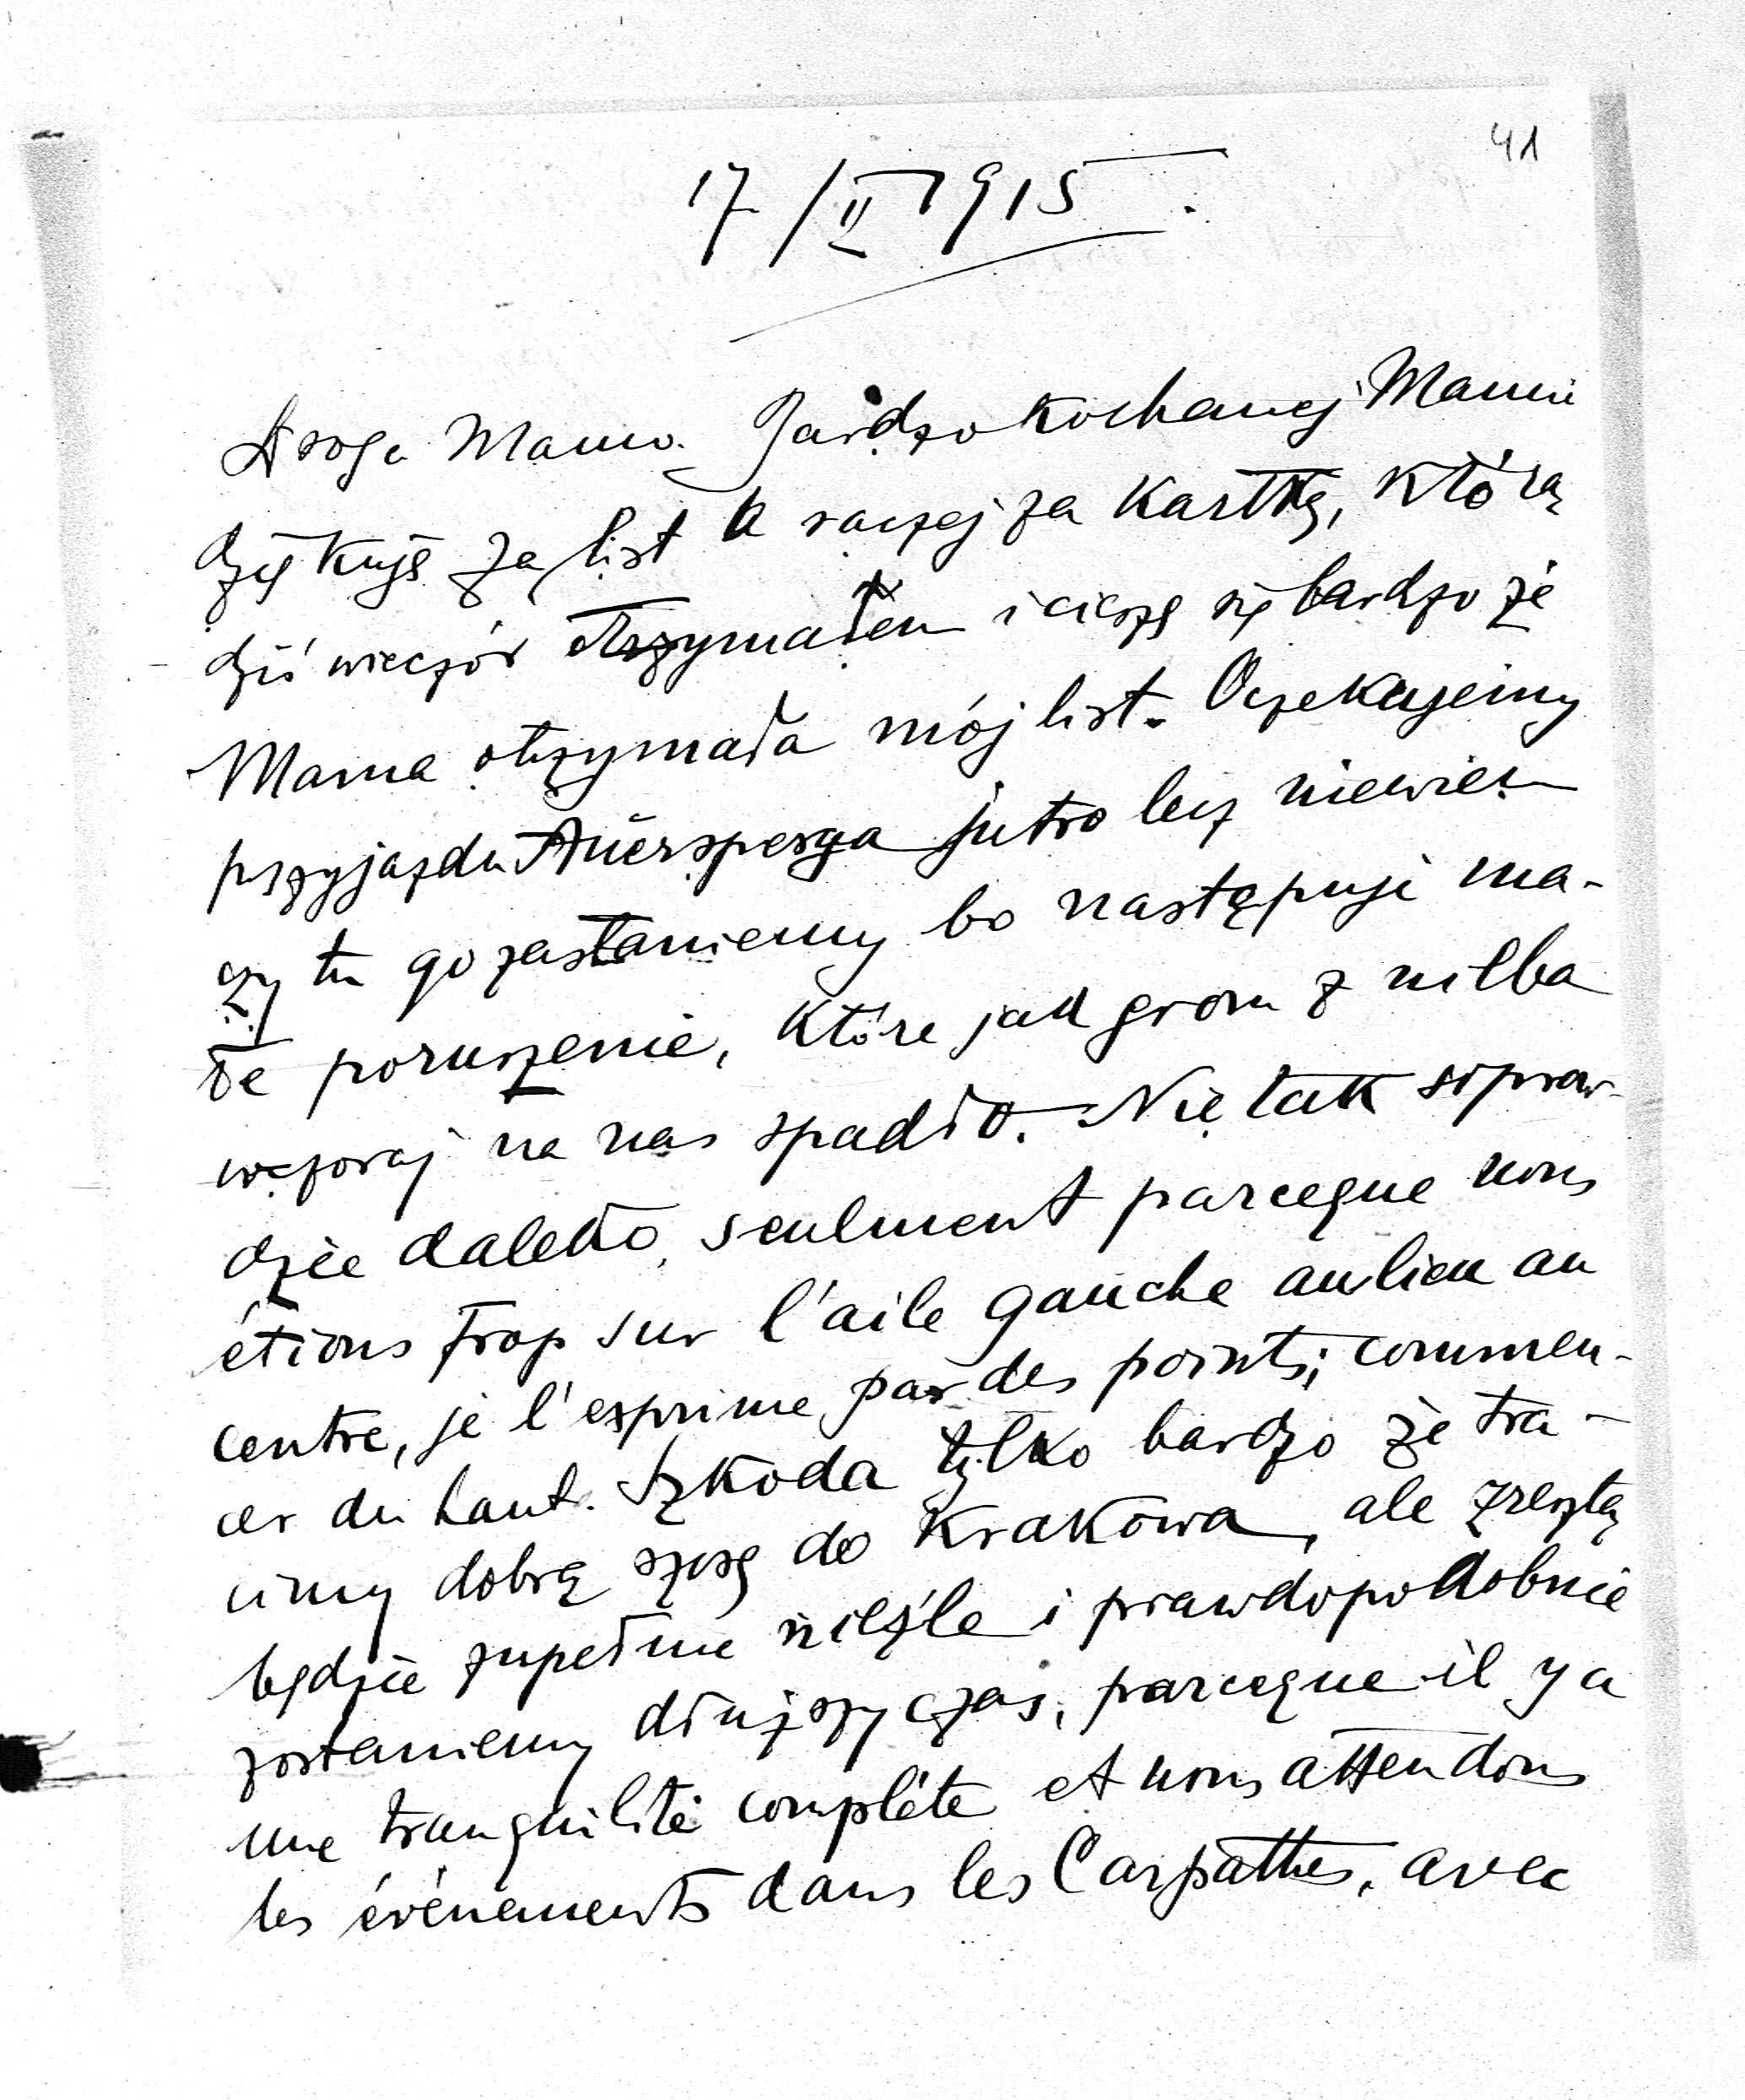 41
17/II 1915.
Droga Mamo. Bardzo kochanej Mamie
dziękuję za list a raczej za kartkę, którą
dziś wieczór otrzymałem i cieszę się bardzo że
Mama otrzymała mój list. Oczekujemy
przyjazdu Auersperga jutro lecz niewiem
czy tu go zastaniemy bo następuje ma-
łe poruszenie, które jak grom z nieba
wczoraj na nas spadło. Nie tak
dzie daleko, seulment parceque nous
étions trop sur l'aile gauche aulieu au
centre, je l'exprime par des points; commen-
cer du haut. Szkoda tylko bardzo że tra-
cimy dobrą szosę do Krakowa, ale zresztą
będzie zupełnie nieźle i prawdopodobnie
zostaniemy dłuższy czas, parceque il y a
une tranquilité complète et nous attendons
les événements dans les Carpathes, avec